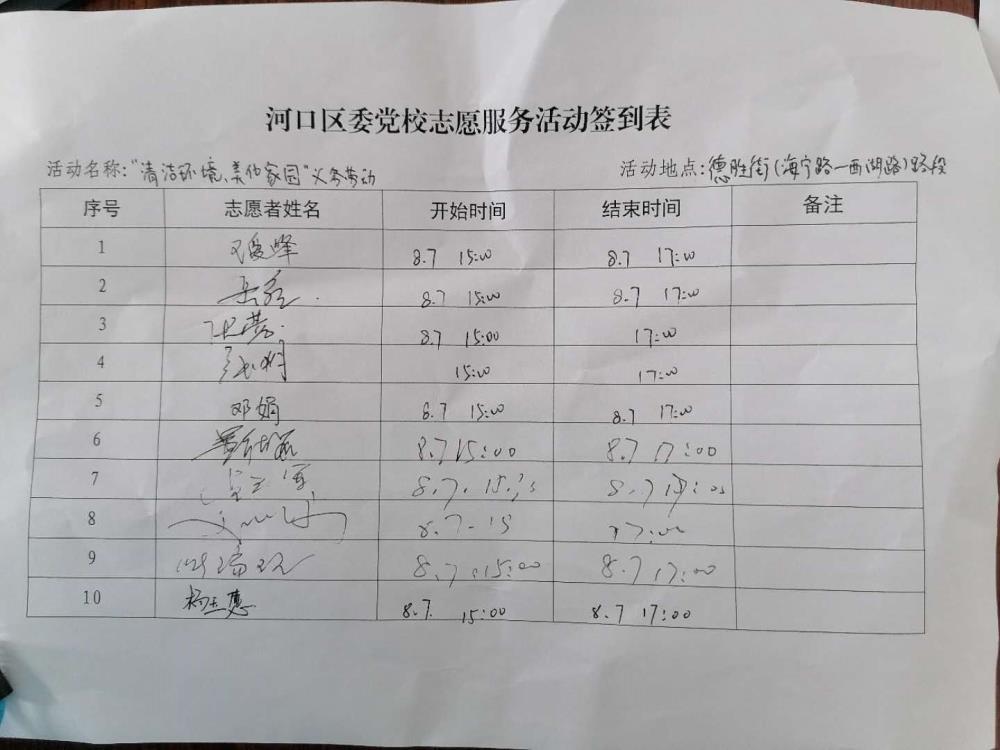 河口区委党校志愿服务活动签到表
活动名称:"清洁环境、美化家园"义务劳动 活动地点:德胜街(海宁路一西湖路)路段
序号 志愿者姓名 开始时间 结束时间 备注
1 8.7 15:00 8.7 17:00
2 8.7 15:00 8.7 17:00
3 8.7 15:00 17:00
4 15:00 17:00
5 邓娟 8.7 15:00 8.7 17:00
6 8.7 15:00 8.7 17:00
7 8.7. 8.7
8 8.7-15 17:00
9 8.7.15:00 8.7 17:00
10 杨玉慧 8.7. 15:00 8.7 17:00